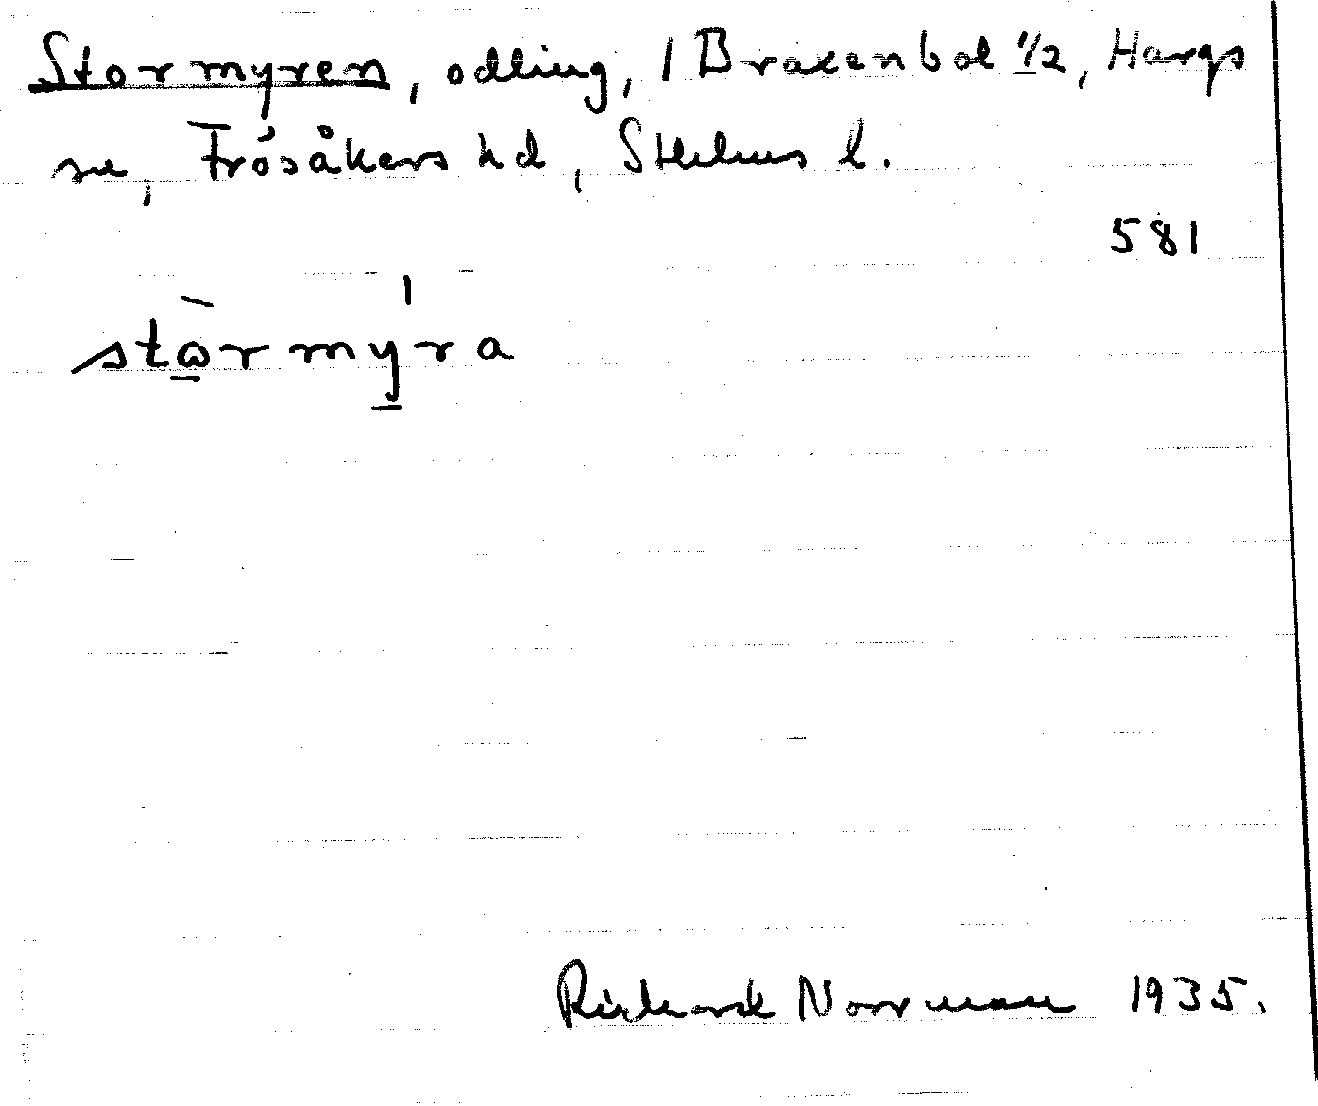 Stormyren, odling, / Braxenbol 1/2, Hargs
sn, Frösåkers hd, Sthlms l.
581
stòrmy̱ra
Richard Norrman 1935.